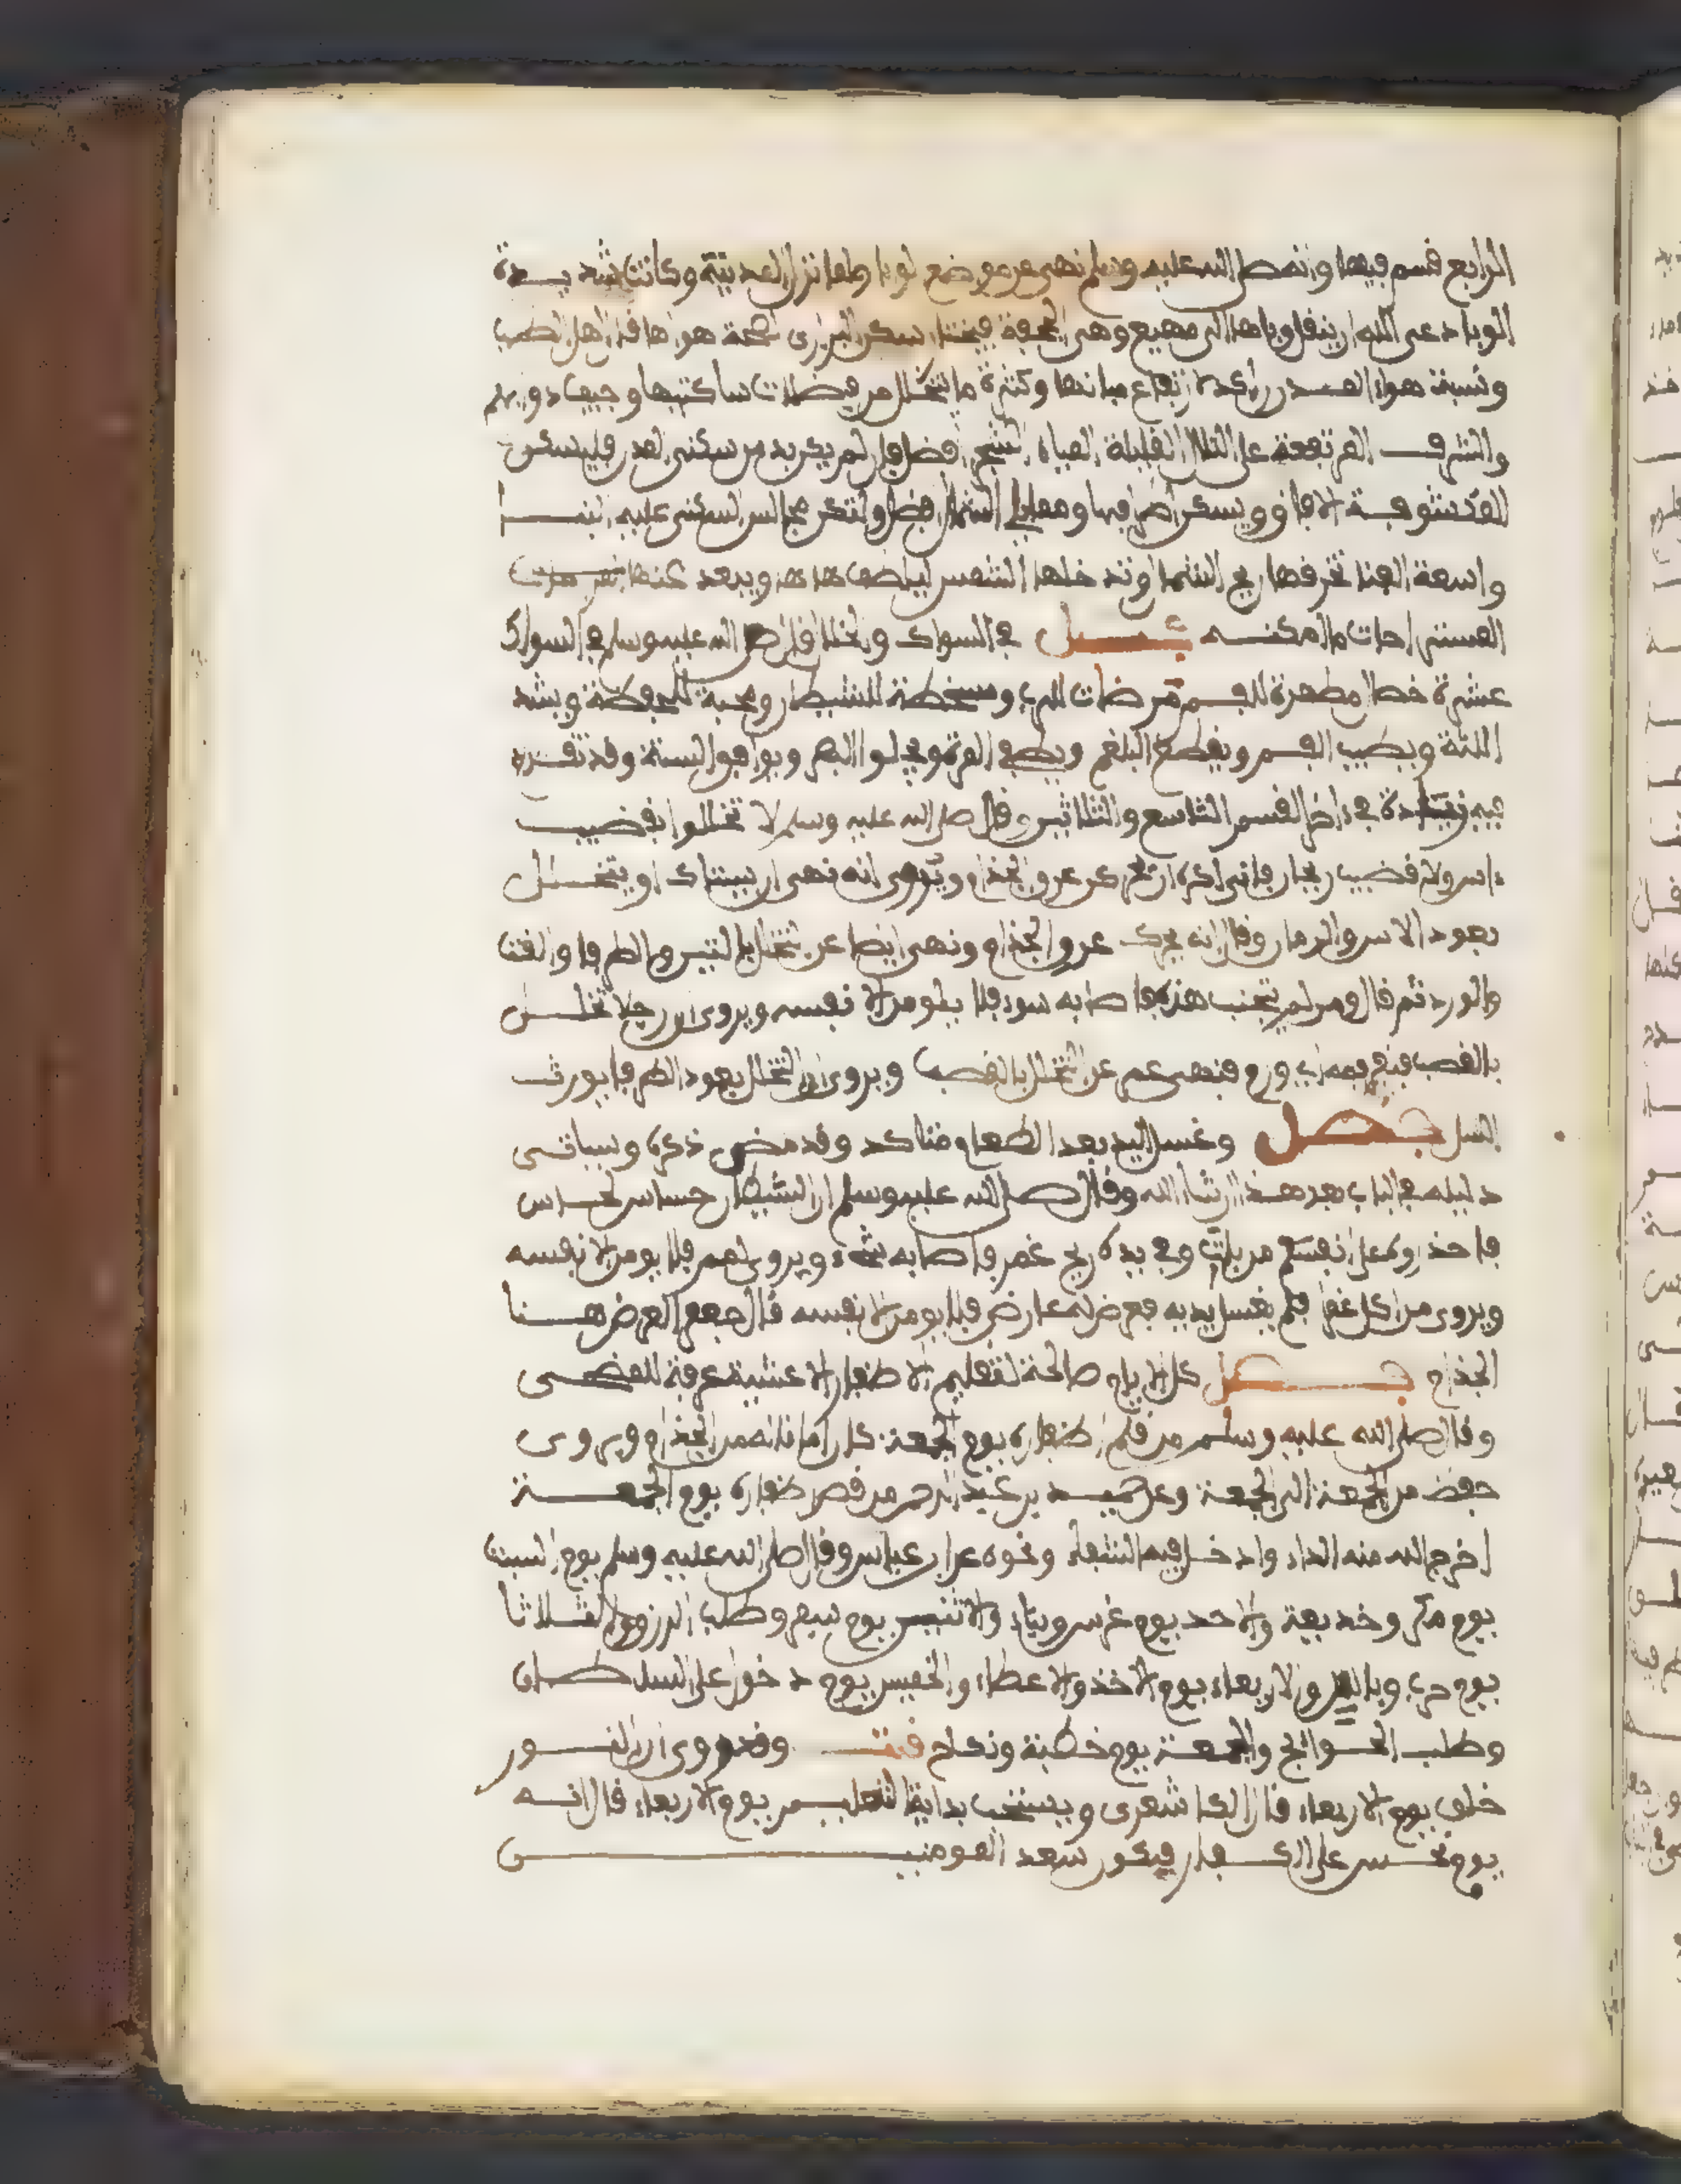 الرابع قسم فيها وانه صلى الله عليه وسلم نهى عن موضع الوبا ولما نزل المدينة وكانت شديدة
الوبا دعى الله ان ينقل وباها الى مهيع وهى الجحفة فيختار سكن البرارى لصحة هواها قال اهل الطب
ونسبة هواء المدن راكدة لارتفاع مبانها وكثرة ما يتحلل من فضلات ساكنيها وجيف دوابهم
والشرف المرتفعة على التلال القليلة المياه الشجر افضل فان لم يكن بد من سكنى المدن فليسكن
المكشوفة الافاق ويسكن اطرافها ومما يلي الشمال افضل ولتكن مجالس السكنى عليه البنا
واسعة الفنا تخرقها ريح الشمال وتدخلها الشمس ليلطف هواه ويبعد عنها
المستراحات ما امكنه فصل في السواك والخلال قال صلى الله عليه وسلم في السواك
عشرة خصال مطهرة للفم مرضات للرب ومسخطة للشيطان ومحبة للحفظة ويشد
اللثة ويطيب الفم ويقطع البلغم ويطفي المرة ويجلو البصر ويوافق السنة وقد تقدم
فيه زيادة في داخل القسم التاسع والثلاثين وقال صلى الله عليه وسلم لا تخللوا بقضيب
ءاس ولا قضيب ريحان فاني اكره ان تحرك عرق الجذام ويروى انه نهى ان يستاك او يتخلل
بعود الاس والرمان وقال انه يحرك عرق الجذام ونهى ايضا عن التخلل بالتين والطرفا والقنا
والورد ثم قال ومن لم يتجنب هذه فاصابه سوء فلا يلومن الا نفسه ويروى ان رجلا تخلل
بالقصب فنفر فمه اي ورم فنهى عمر عن التخلل بالقصب ويروى ان التخلل بعود الطرفا يورث
السل فصل وغسل اليد بعد الطعام متاكد وقد مضى ذكره وسياتى
دليله في الباب بعد هذا ان شاء الله وقال صلى الله عليه وسلم ان الشيطان حساس لحاس
فاحذروه على انفسكم من بات وفي يده ريح غمر فاصابه شيء ويروى لمم فلا يلومن الا نفسه
ويروى من اكل غمرا فلم يغسل يديه فعرض له عارض فلا يلومن الا نفسه قال جعفر العرض هنا
الجذام فصل كل الايام صالحة لتقليم الاظفار الا عشية عرفة للمضحى
وقال صلى الله عليه وسلم من قلم اظفاره يوم الجمعة كان امانا له من الجذام ويروى
حفظ من الجمعة الى الجمعة وعن حميد بن عبد الرحمن من قص اظفاره يوم الجمعة
اخرج الله منه الداء وادخل فيه الشفاء ونحوه عن ابن عباس وقال صلى الله عليه وسلم يوم السبت
يوم مكر وخديعة والاحد يوم غرس وبناء والاثنين يوم سفر وطلب الرزق والثلاثا
يوم حرب وباس والاربعاء يوم الاخذ والاعطاء والخميس يوم دخول على السلطان
وطلب الحوائج والجمعة يوم خطبة ونكاح وقد روى ان النور
خلق يوم الاربعاء قال الكاشغرى ويستحب بداية التعليم يوم الاربعاء قال انه
يوم نحس على الكفار فيكون سعد المومنين